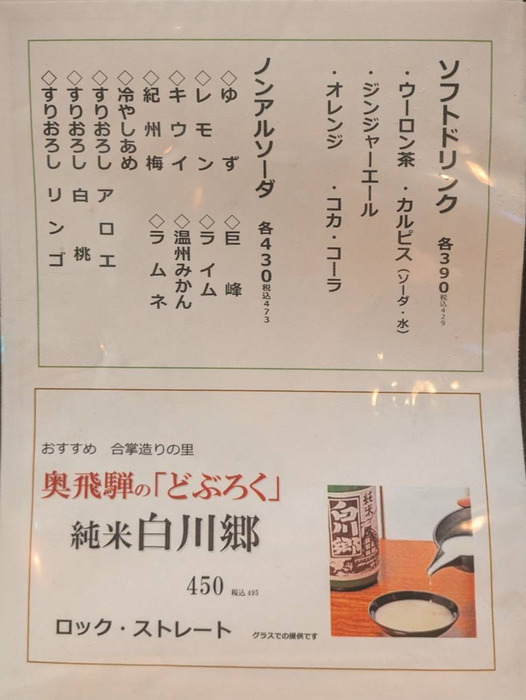 ソフトドリンク 各390税込429
・ウーロン茶 ・カルピス(ソーダ・水)
・ジンジャーエール
・オレンジ ・コカ・コーラ
ノンアルソーダ 各430税込473
◇ゆず ◇巨峰
◇レモン ◇ライム
◇キウイ ◇温州みかん
◇紀州梅 ◇ラムネ
◇冷やしあめ
◇すりおろし アロエ
◇すりおろし 白桃
◇すりおろし リンゴ
おすすめ 合掌造りの里
奥飛騨の「どぶろく」
純米白川郷
450 税込495
ロック・ストレート グラスでの提供です
純米
白川郷